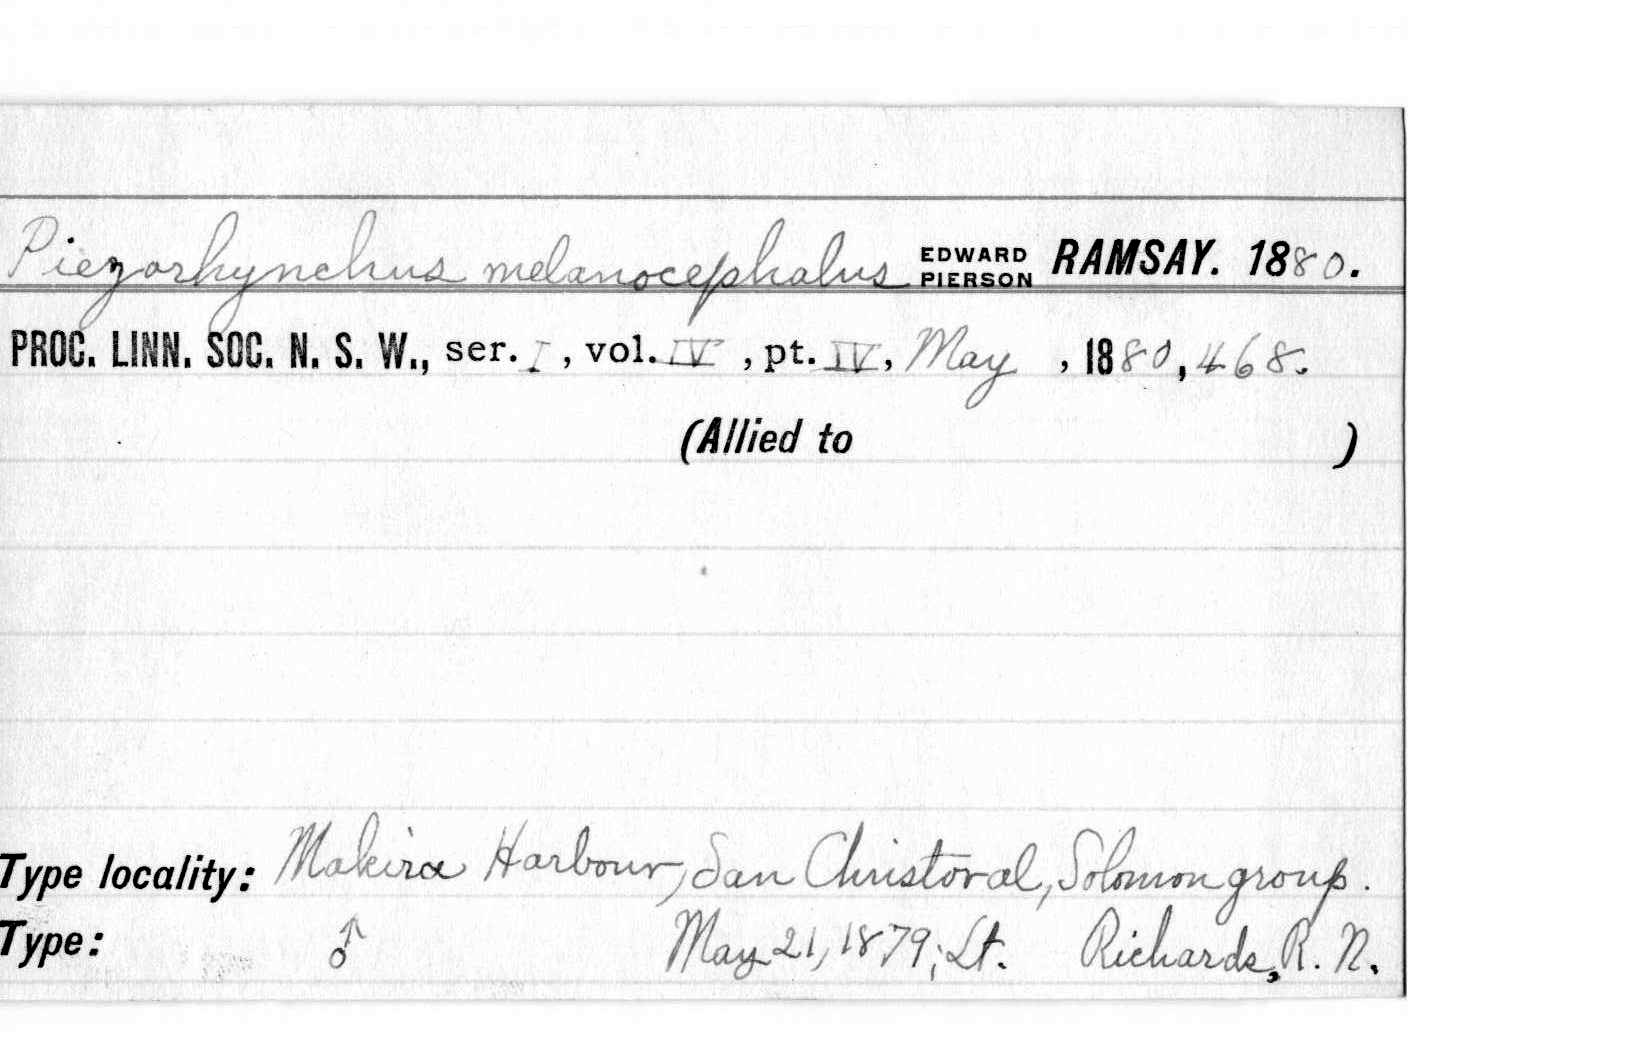 Piezorhynchus melanocephalus EDWARD PIERSON RAMSAY. 1880.
PROC. LINN. SOC. N. S. W., ser. I, vol. IV, pt. IV, May, 1880, 468.
(Allied to )
Type locality: Makira Harbour, San Christoval, Solomon group.
Type: ♂ May 21, 1879; Lt. Richards, R. N.